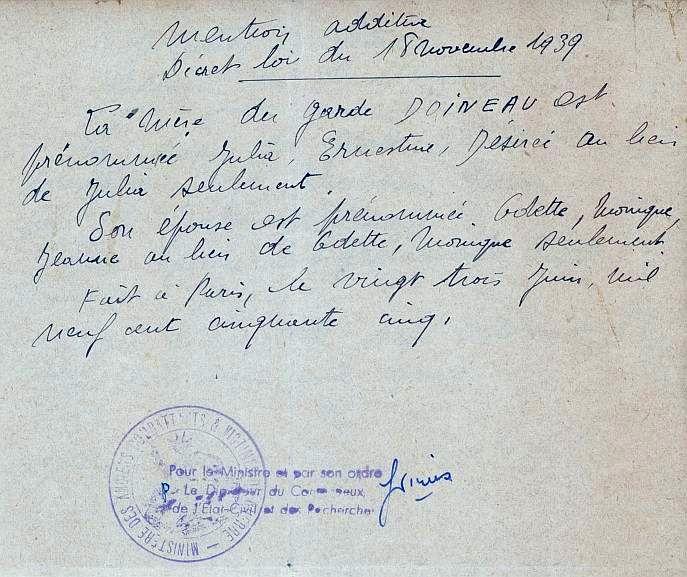 Mention additive
Décret loi du 18 novembre 1939
La mère du garde DOINEAU est
prénommée Julia, Ernestine, Désirée au lieu
de Julia seulement.
Son épouse est prénommée Odette, Monique,
Jeanne au lieu de Odette, Monique seulement
Fait à Paris, le vingt trois Juin, mil
neuf cent cinquante cinq.
MINISTÈRE DES ANCIENS COMBATTANTS & VICTIMES DE GUERRE
Pour le Ministre et par son ordre
P. Le Directeur du Contentieux,
de l'Etat-Civil et des Recherches